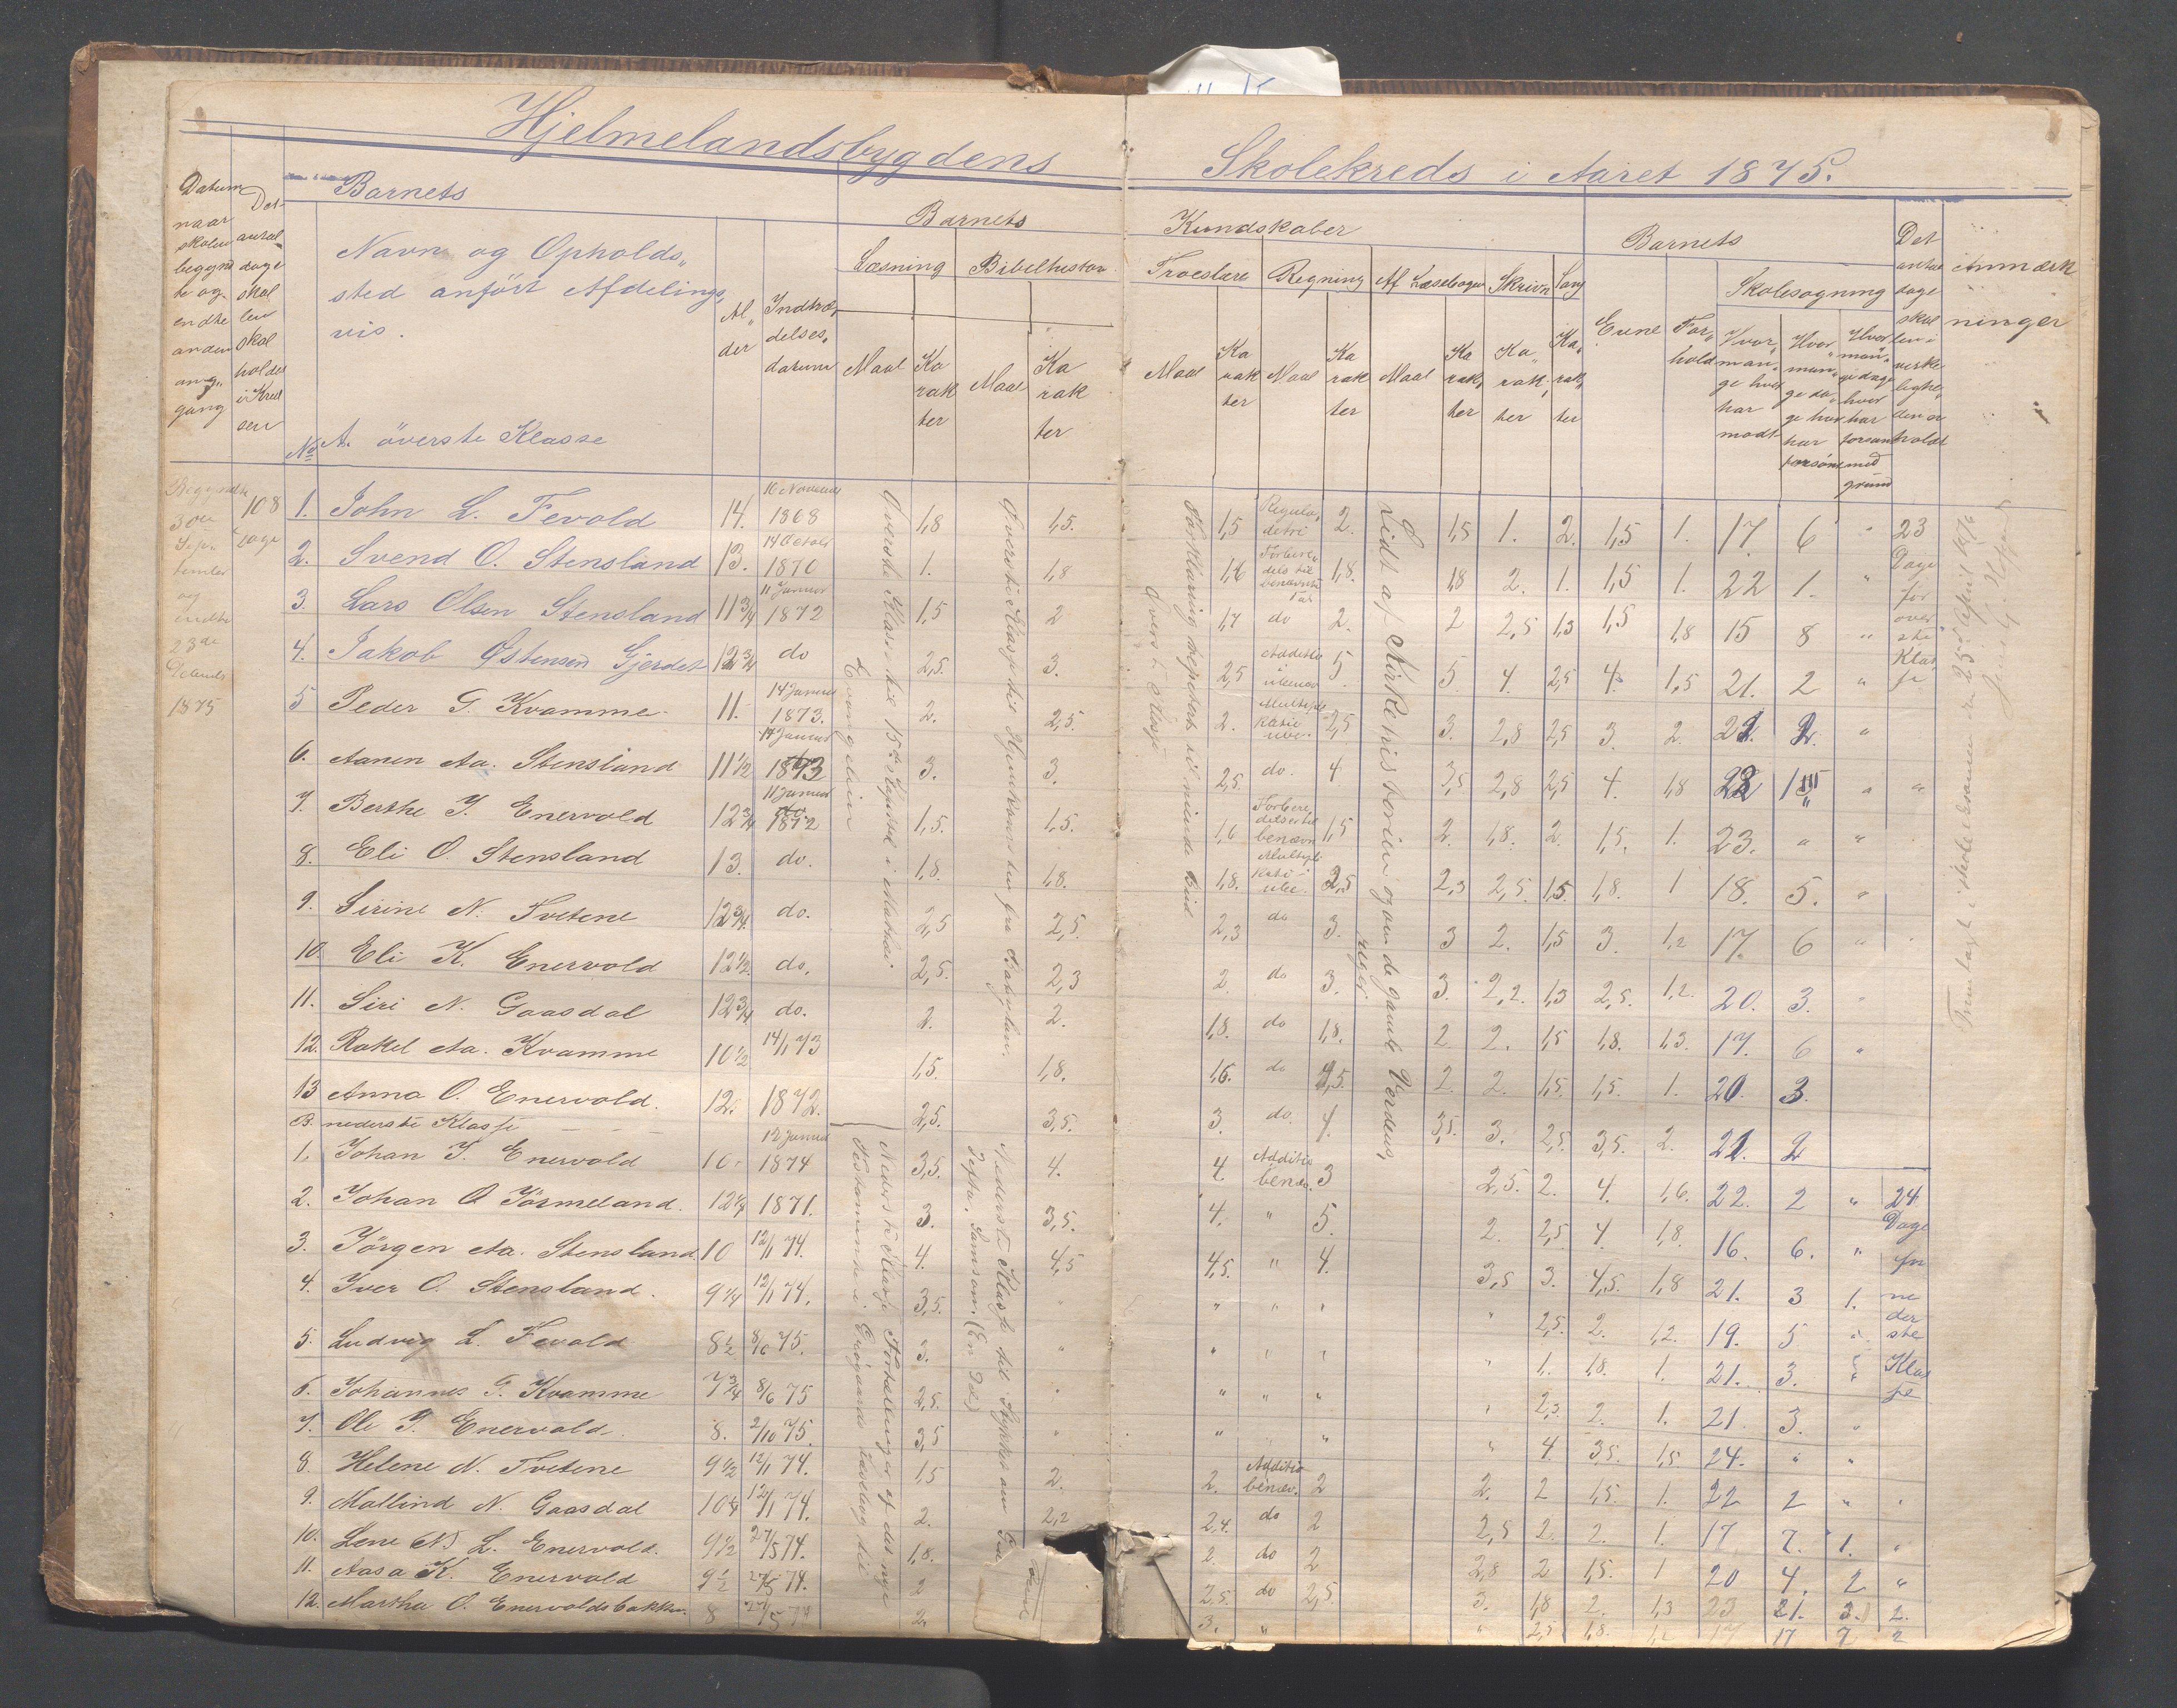 Hjelmelandsbygdens Skolekreds i Aaret 1875.
Datum naar skolen begyndte og endte anden omgang
Det antal dage skolen skal holdes i Kredsen
Barnets
Navn og Opholds„
sted anført Afdelings„
vis.
Al„
der
Indtræ„
delses„
datum
Barnets
Læsning
Bibelhistor.
Maal
Ka
rak
ter
Maal
Ka
rak
ter
Kundskaber
Troeslære
Regning
Af Læsebogen
Skrivn
Sang
Maal
Ka
rak
ter
Maal
Ka
rak
ter
Maal
Ka
rak„
ter
Ka„
rak„
ter
Ka„
rak„
ter
Barnets
Evne
For„
hold
Skolesøgning
Hvor„
man„
ge hver
har
mødt
Hvor„
man„
ge da„
ge hver
har
forsømt
Hvor
man„
ge dage
hver
har
forsømt
med
grund
Det
antal
dage
skol
en i
virke
lighe„
den er
holdt
Anmærk
ninger
No A. øverste Klasse
Begyndte
30te
Sep„
tember
og
endte
23de
Decembr
1875
108
Dage
1. John L. Fevold 14. 16 November 1868 1,8 1,5. 1,5 Regula„ detri 2. 1,5 1. 2. 1,5 1. 17. 6 „ 23
2. Svend O. Stensland 13. 14 October 1870 1. 1,8 1,6 Forbere„ dels til benævnte Tal 1,8. 1,8 2. 1. 1,5 1. 22 1. „
3. Lars Olsen Stensland 11 3/4 11 Januar 1872 1,5 2 1,7 do 2. 2 2,5 1,3 1,5 1,8 15 8 „
4. Jakob Østensen Gjerdet 12 3/4 do 2,5. 3. 2,5 Additio i ubenæv 5 5. 4. 2,5 4. 1,5 21. 2 „
5 Peder G. Kvamme 11. 14 Januar 1873. 2. 2,5. 2. Multipli katio ube. 2,5 3. 2,8 2,5 3. 2. 21. 2. „
6. Aanen Aa. Stensland 11 1/2 14 Januar 1873 3. 3. 2,5. do. 4 3,5 2,8 2,5 4. 1,8 22 1 „ „
7. Berthe J. Enervold 12 3/4 11 Januar 1872 1,5. 1,5. 1,6 Forbere„ delser til benævn 1,5 2. 1,8. 2. 1,5. 1. 23. „ „
8. Eli O. Stensland 13. do. 1,8. 1,8. 1,8. Multipli kati- ube. 2,5 2,3 2,5. 1,5. 1,8. 1 18. 5. „
9. Sirine N. Tvetene 12 3/4. do. 2,5 2,5. 2,3 do 3. 3 2. 1,5 3. 1,2 17. 6 „
10. Eli K. Enervold 12 1/2. do. 2,5. 2,3 2. do 3. 3. 2,2. 1,3 2,5. 1,2. 20. 3. „
11. Siri N. Gaasdal 12 3/4 do. 2. 2. 1,8. do 1,8. 2 2. 1,5 1,8. 1,3. 17. 6 „
12. Rakel Aa. Kvamme 10 1/2 14/1 73 1,5. 1,8. 1,6. do 2,5. 2. 2. 1,5. 1,5. 1. 20. 3.
13 Anna O. Enervold. 12. 1872. 2,5. 3,5. 3. do. 4. 3,5. 3. 2,5. 3,5. 2. 21. 2
Øverste Klasse til 15de Kapittel i Mathæi
Evangelium
Øverste Klasse til Hjemkomsten fra Babylon.
Forklaring repetert til niende Bud
Øverste Klasse
Lidt af Kirkehistorien og om de gamle Verdens„
riger
Dage
for
øver
ste
Klas
se
Fremlagt i skolekommissionen 25de April 1876
B. nederste Klasse
1. Johan J. Enervold 10 12 Januar 1874 3,5. 4. 4 Additio benæv. 3 2,5. 2. 4. 1,6. 22. 2 „ 24
2. Johan O Jösmeland. 12 1/4 1871. 3. 3,5. 4. „ 5. 2. 2,5. 4. 1,8. 16. 6. „
3. Jörgen Aa. Stensland. 10 12/1 74. 4. 4,5 4,5. „ 4. 3,5 3. 4,5. 1,8 21. 3 1.
4. Iver O. Stensland. 9 1/4 12/1 74. 3,5. „ „ „ „ „ 2,5. 2. 1,2. 19. 5 „
5. Ludvig L. Fevold 8 1/2 8/6 75. 3. „ „ „ „ „ 1. 1,8. 1. 21. 3. „
6. Johannes G. Kvamme 7 3/4 8/6 75 2,5. „ „ „ „ „ 2,3 2. 1. 21. 3. „
7. Ole J. Enervold. 8. 2/10 75. 3,5 „ „ „ „ 4. 3,5. 1,5 24. „ „
8. Helene N. Tvetene 9 1/2 12/1 74. 1,5 2. 2. Additio benæv. 2 2. 2 1,5. 1. 22 2 „ „
9. Mallind N. Gaasdal 10 1/4 12/1 74. 2. 2,2 2,4. do 2 2,5 2. 2. 1. 17 7. 1. „
10. Lene (N) L. Enervold. 9 1/2 27/5 74. 1,8. 2. do 2 2,8 2 1,5. 1 20 4. 2 „
11. Aasa K. Enervold 9 1/2 27/5 74. 2 2,5. do 2,5. 3. 1,8 2. 1,3 23 1. 3. 2.
12. Martha O. Enervoldsbakken. 8 27/5 74 2. 3. „ „ 2,5 1,8. 1,2 17 17 7 2
Nederste Klasse Fortællinger af det nye
Testamente i Erögaards Læsebog til
Nederste Klasse til Stykket om
Jefta, Samson. (En Del)
Dage
for
ne
der
ste
Klas
se